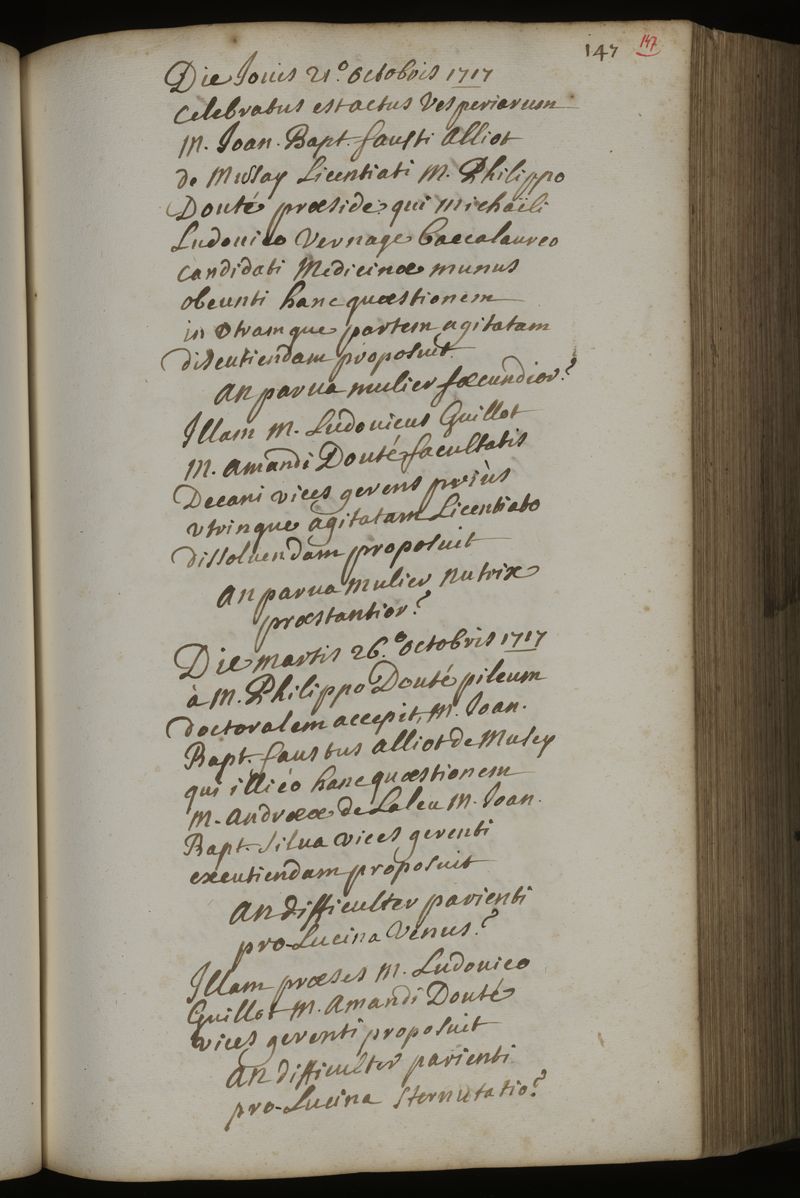 147 147
Die Jouis 21.º octobris 1717
celebratus est actus Vesperiarum
M. Joan. Bapt. fausti Alliot
de Mussay Licentiati M. Philippo
Douté præside, qui Michaëli
Ludouico Vernage baccalaureo
candidati Medicinæ munus
obeunti hanc quæstionem
in vtramque partem agitatam
discutiendam proposuit.
An parua mulier fœcundior?
Illam M. Ludouicus Guillot
M. Amandi Douté facultatis
Decani vices gerens priùs
vtrinque agitatam Licentiato
dissoluendam proposuit
An parua Mulier nutrix
præstantior?
Die martis 26.º octobris 1717
à M. Philippo Douté pileum
doctoralem accepit, M. Joan.
Bapt. faustus alliot de Mussey
qui illicò hanc quæstionem
M. Andreæ de Laleu M. Joan.
Bapt. Silua vices gerenti
excutiendam proposuit
An difficulter parienti
pro-Lucina Venus?
Illam præses M. Ludouico
Guillot M. Amandi Douté
vices gerenti proposuit
An difficulter parienti
pro-Lucina Sternutatio?